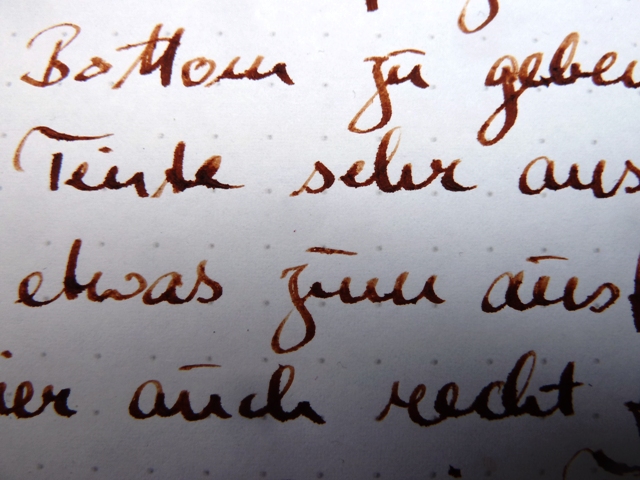 Bottom zu geben
Tinte sehr aus
etwas zum aus
ier auch recht